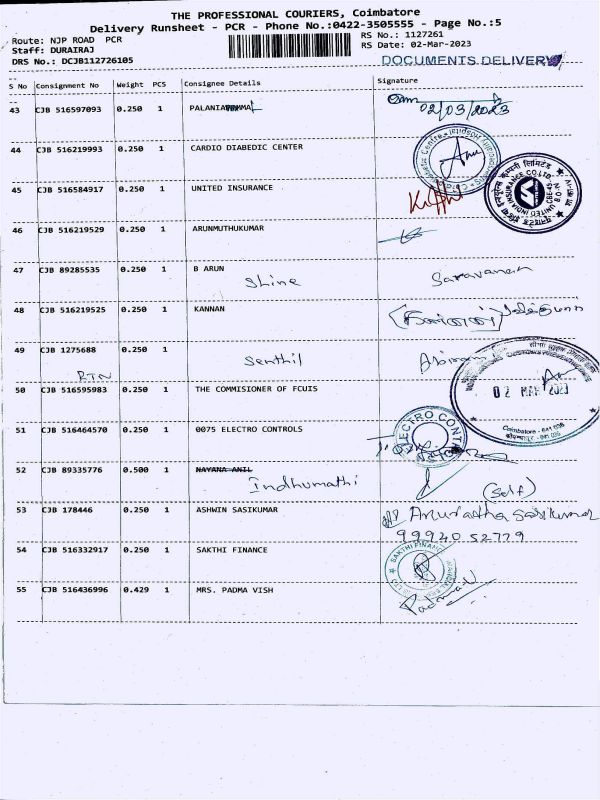 THE PROFESSIONAL COURIERS, Coimbatore
Delivery Runsheet - PCR - Phone No.:0422-3505555 - Page No.:5
Route: NJP ROAD PCR
RS No.: 1127261
Staff: DURAIRAJ
RS Date: 02-Mar-2023
DRS No.: DCJB112726105
DOCUMENTS DELIVERY
S No Consignment No Weight PCS Consignee Details Signature
43 CJB 516597093 0.250 1 02/03/2023
44 CJB 516219993 0.250 1 CARDIO DIABEDIC CENTER
45 CJB 516584917 0.250 1 UNITED INSURANCE
46 CJB 516219529 0.250 1 ARUNMUTHUKUMAR
47 CJB 89285535 0.250 1 B ARUN
Shine Saravanan
48 CJB 516219525 0.250 1 KANNAN
49 CJB 1275688 0.250 1
Senthil
RTN
50 CJB 516595983 0.250 1 THE COMMISIONER OF FCUIS
02 MAR 2023
Coimbatore - 641 018
51 CJB 516464570 0.250 1 0075 ELECTRO CONTROLS
ELECTRO CONTROLS
52 CJB 89335776 0.500 1 NAYANA ANIL
Indhumathi
(Self)
53 CJB 178446 0.250 1 ASHWIN SASIKUMAR
Anuradha Sasikumar
9994052779
54 CJB 516332917 0.250 1 SAKTHI FINANCE
SAKTHI FINANCE
55 CJB 516436996 0.429 1 MRS. PADMA VISH